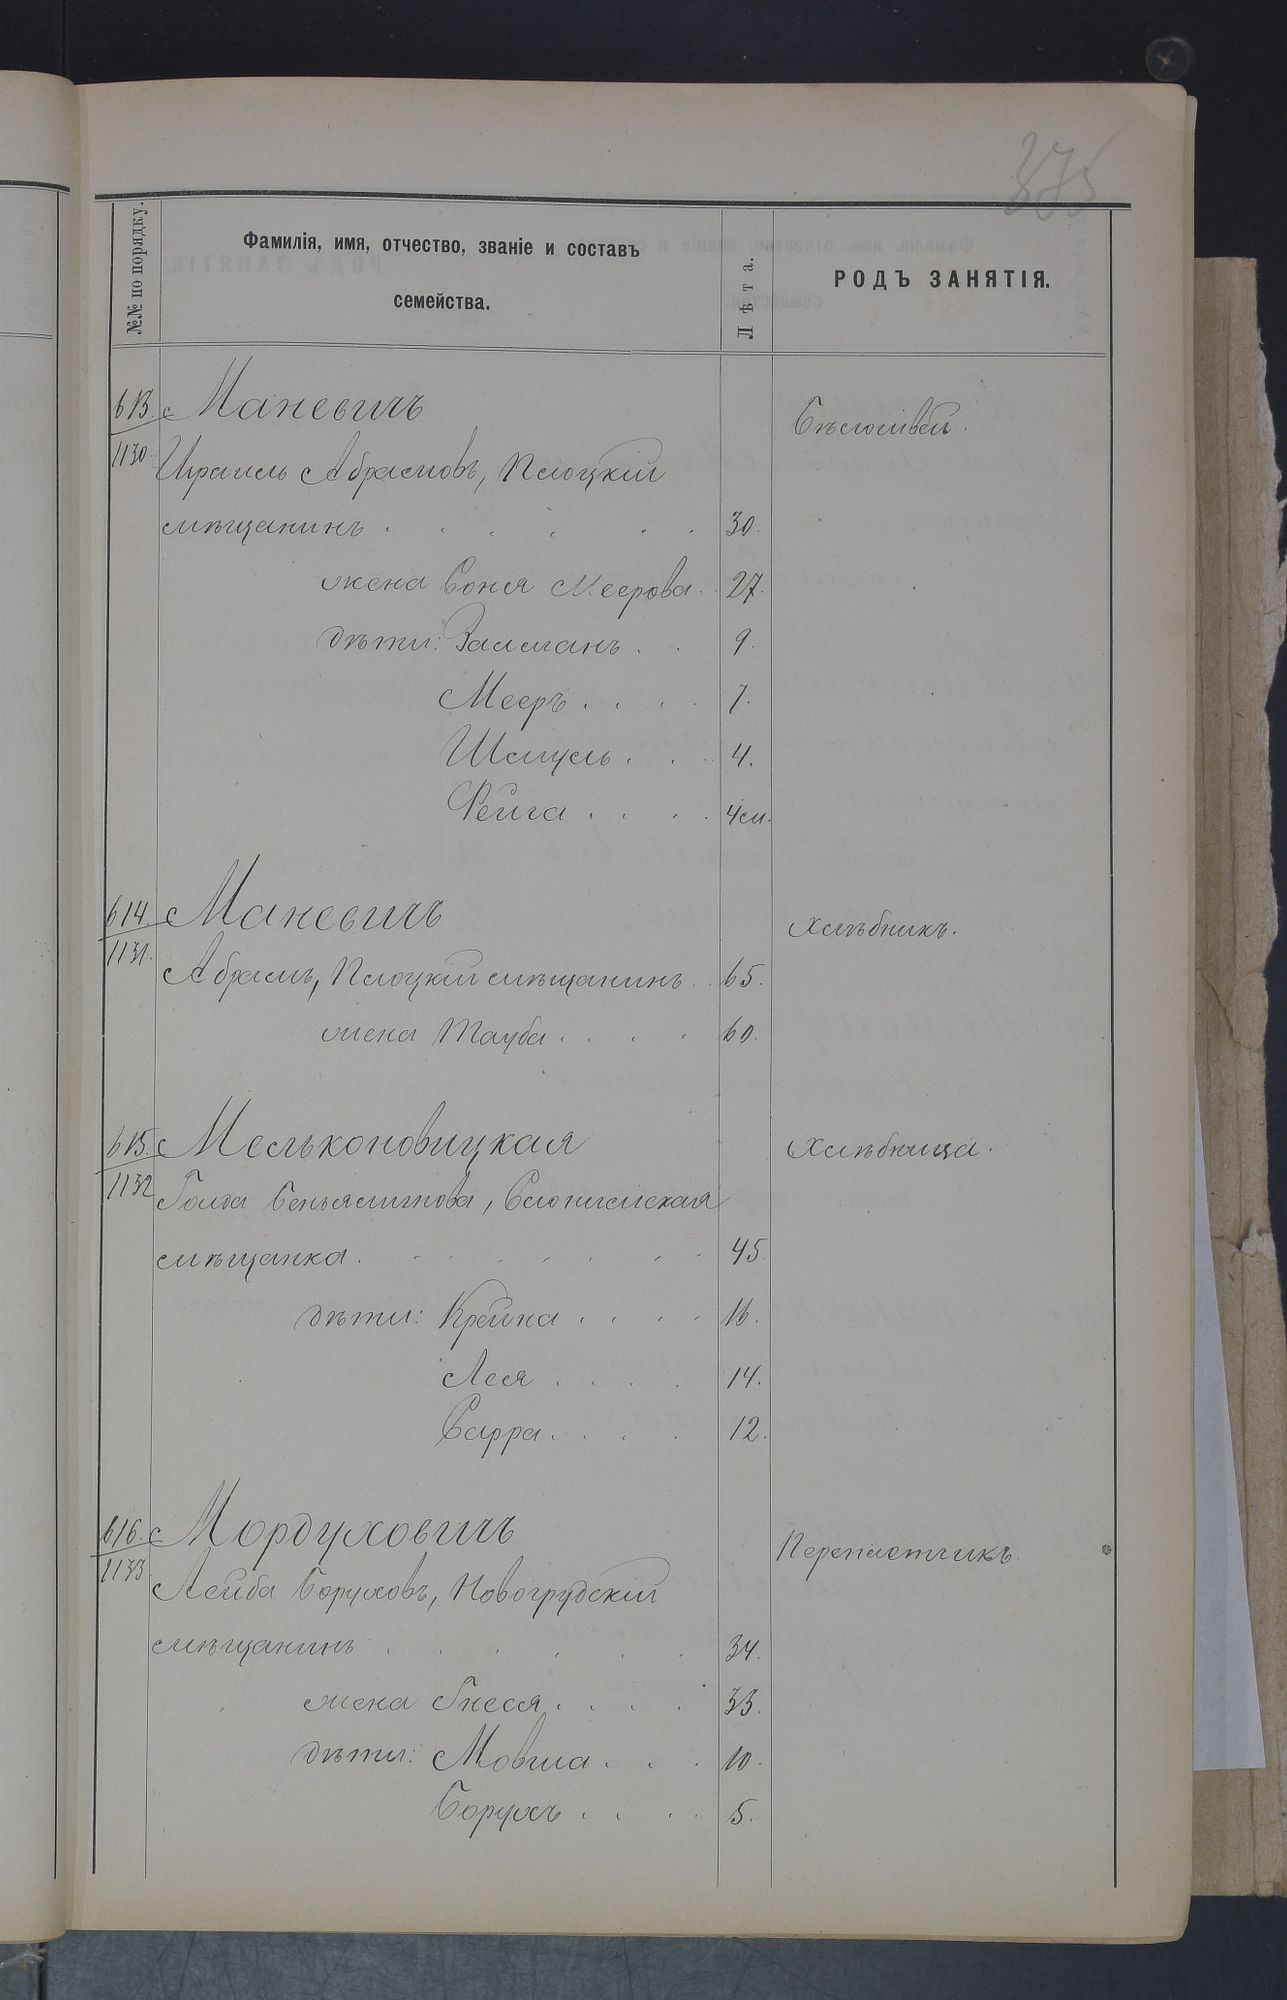 335
№№ по порядку.
Фамилія, имя, отчество, званіе и составъ
семейства.
Лѣта.
РОДЪ ЗАНЯТІЯ.
613. Маневичъ
1130. Бѣлошвей.
Израиль Абрамовъ, Плоцкій
мѣщанинъ . . . . . . 30.
жена Соня Меерова. 27.
дѣти: Залманъ . . 9.
Мееръ . . . . 7.
Шмуль . . . 4.
Фейга . . . . 4 м.
614. Маневичъ Хлѣбникъ.
1131.
Абрамъ, Плоцкій мѣщанинъ . . 65.
жена Тауба . . . . 60.
615. Мельконовицкая Хлѣбница.
1132
Голда Беньяминова, Слонимская
мѣщанка . . . . . . . 45.
дѣти: Крейна . . . . 16.
Лея . . . . 14.
Сарра . . . . 12.
616. Мордуховичъ Переплетчикъ.
1133
Лейба Боруховъ, Новогрудскій
мѣщанинъ . . . . . . 34.
жена Гнеся . . . . 33.
дѣти: Мовша . . . 10.
Борухъ . . . . 5.